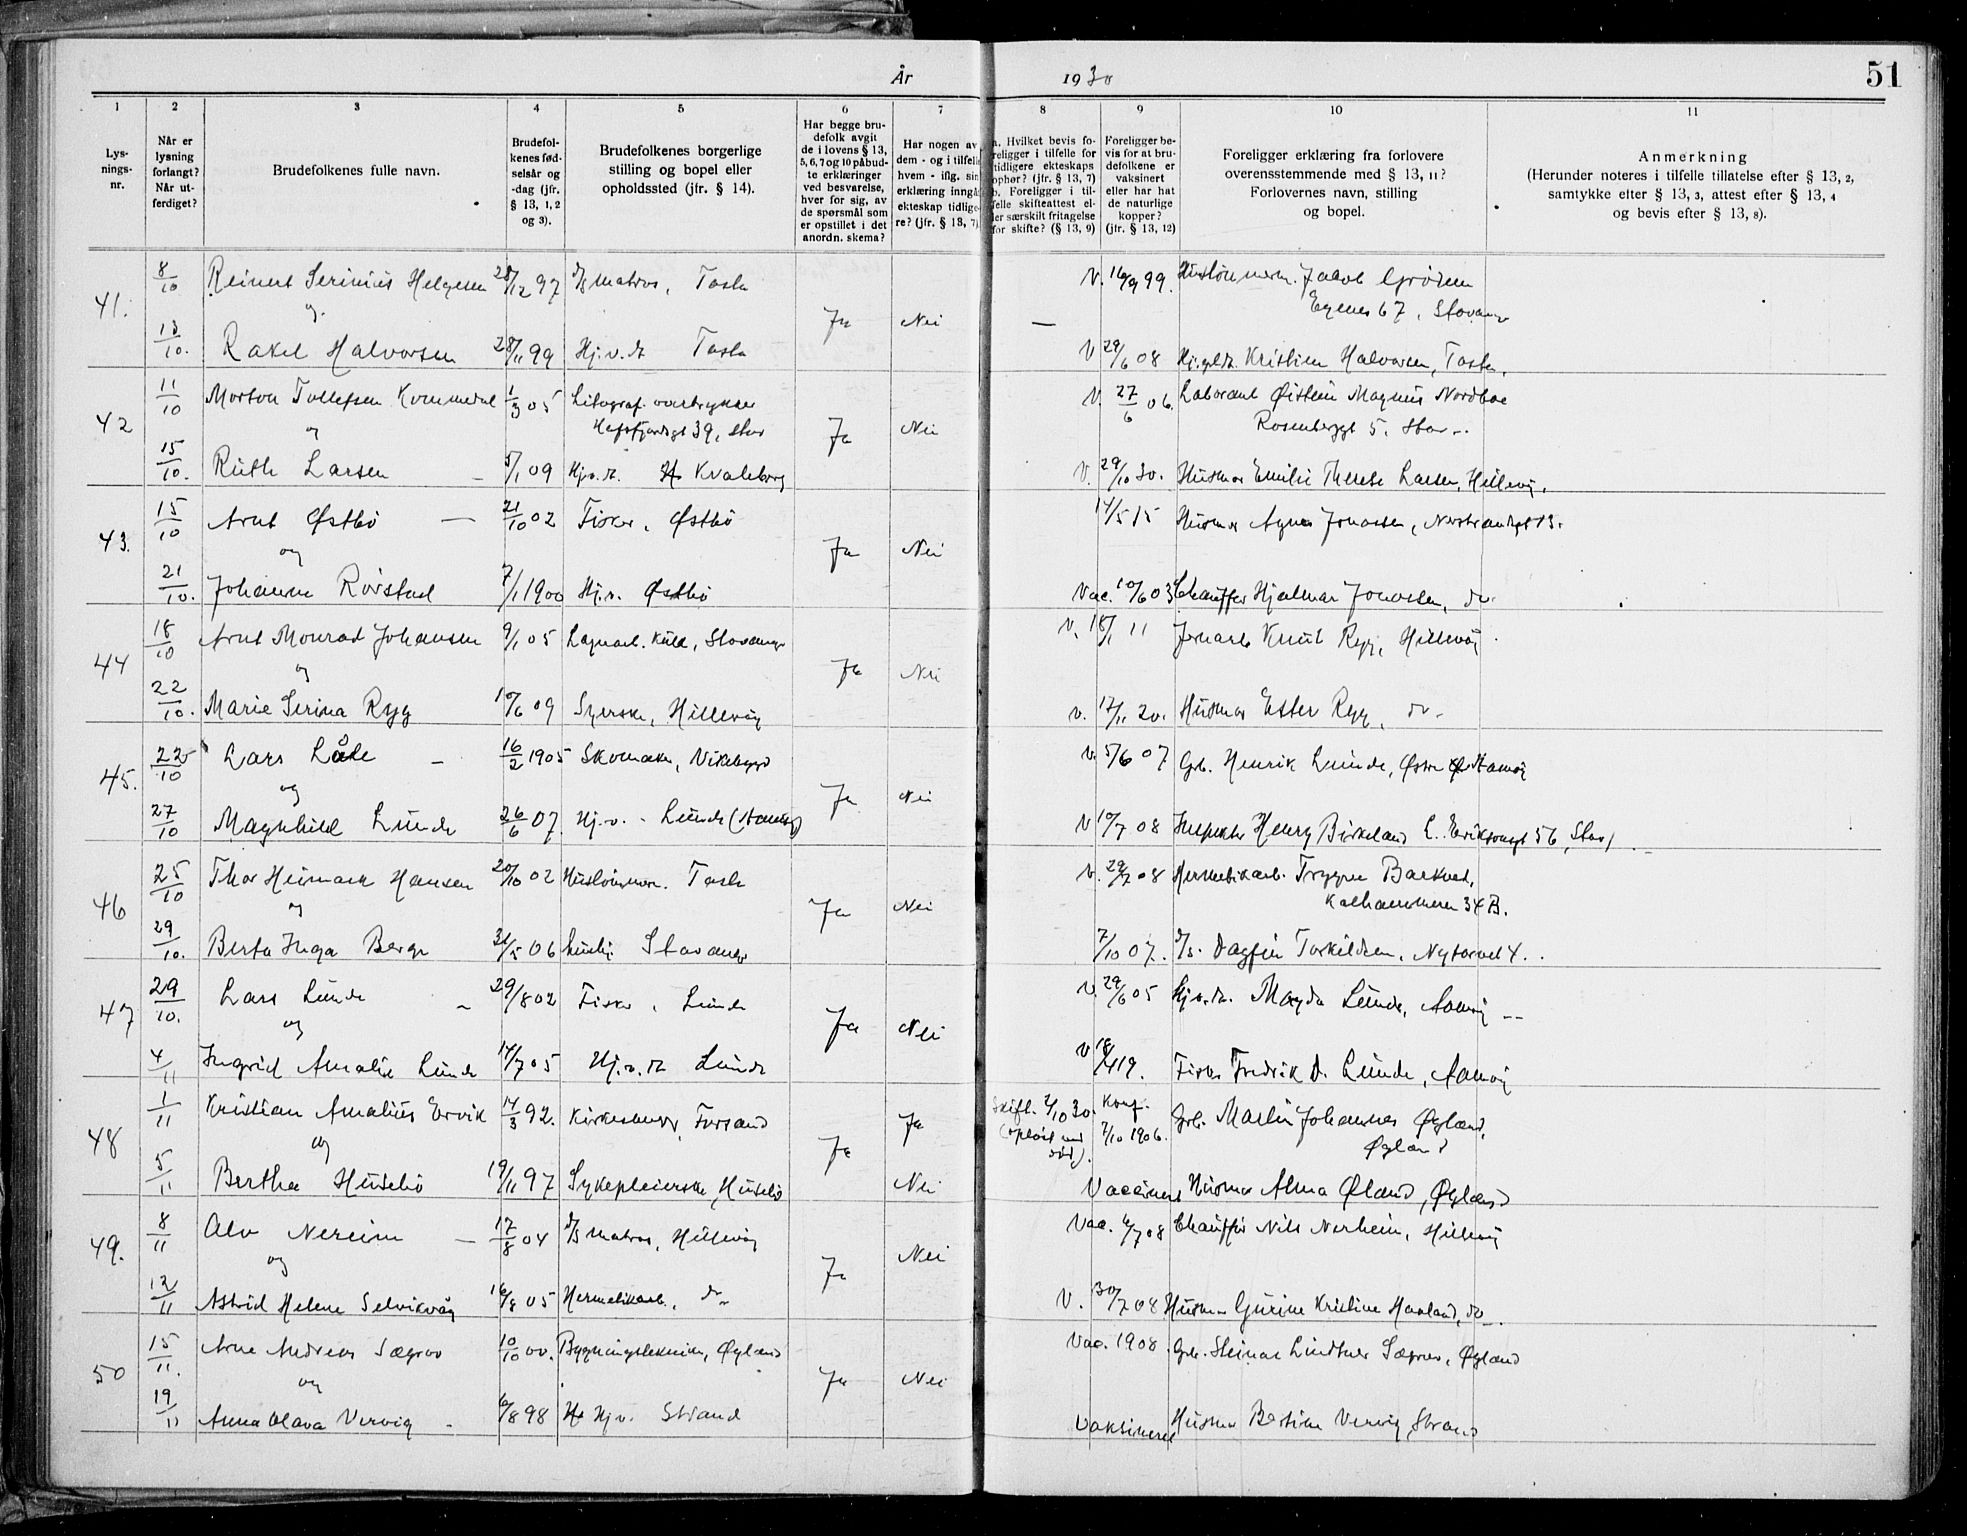 År 1930
51
1 2 3 4 5 6 7 8 9 10 11
Lys-
nings-
nr.
Når er
lysning
forlangt?
Når ut-
ferdiget?
Brudefolkenes fulle navn.
Brudefol-
kenes fød-
selsår og
-dag (jfr.
§ 13, 1, 2
og 3).
Brudefolkenes borgerlige
stilling og bopel eller
opholdssted (jfr. § 14).
Har begge bru-
defolk avgit
de i lovens § 13,
5, 6, 7 og 10 påbud-
te erklæringer
ved besvarelse,
hver for sig, av
de spørsmål som
er opstillet i det
anordn. skema?
Har nogen av
dem - og i tilfelle
hvem - iflg. sin
erklæring inngåt
ekteskap tidlige-
re? (jfr. § 13, 7)
a. Hvilket bevis fo-
religger i tilfelle for
tidligere ekteskaps
ophør? (jfr. § 13, 7)
b. Foreligger i til-
felle skifteattest el-
ler særskilt fritagelse
for skifte? (§ 13, 9)
Foreligger be-
vis for at bru-
defolkene er
vaksinert
eller har hat
de naturlige
kopper?
(jfr. § 13, 12)
Foreligger erklæring fra forlovere
overensstemmende med § 13, 11?
Forlovernes navn, stilling
og bopel.
Anmerkning
(Herunder noteres i tilfelle tillatelse efter § 13, 2,
samtykke efter § 13, 3, attest efter § 13, 4
og bevis efter § 13, 8).
41. 8/10 Reinert Serinius Helgesen 28/12 97 d/s matros, Tasta V. 16/9 99. Jakob Grødem
og Ja Nei — Egenes 67, Stavanger
13/10. Rakel Halvorsen 28/11 99 Hj.v.dr Tasta V 29/6 08 Kristian Halvorsen, Tasta.
42 11/10 Morton Tollefsen Kommedal 1/3 05 Litograf. V. 27/6 06. Laborant Øistein Magnus Nordboe
og Hafrsfjordgt 39, Stav Ja Nei Rosenberggt 5. Stav -.
15/10. Ruth Larsen 5/1 09 Hj.v.dr. Kvaleberg V. 29/10 30. Husmor Emilie Therese Larsen, Hillevåg.
43. 15/10 Arnt Østbö — 21/10 02 Fisker, Østbö 14/5 15 Husmor Agnes Jonassen, 13.
og Ja Nei
21/10. Johanna Rörstad 7/1 1900 Hj.v. Østbö Vac. 10/6 03 Chauffør Hjalmar Jonassen, do.
44 18/10 Arnt Monrad Johansen 9/1 05 Lagerarb. Stavanger V. 18/1 11 Jernarb Knut Ryg, Hillevåg.
og Ja Nei
22/10. Marie Serina Ryg 10/6 09 Syerske, Hillevåg v. 17/11 20. Husmor Ester Ryg, do.
45. 22/10 Lars Låde - 16/2 1905 Skomaker, Vikebygd V. 5/6 07 Grb. Henrik Lunde, Østre Aamöy
og Ja Nei
27/10 Magnhild Lunde 26/6 07. Hj.v. - Lunde (Aamöy) V 10/7 08 Inspektør Henry Birkeland L. Eriksonsgt 56, Stav.
46 25/10 Thor Heimark Hansen 20/10 02 Tasta V. 29/7 08 Hermetikarb. Trygve Barkved,
og Ja Nei Kalhammeren 34 B.
29/10. Berta Inga Berge 31/5 06 Stavanger 7/10 07. Dagfin Torkildsen, Nytorvet 4.
47 29/10. Lars Lunde - 29/8 02 Fisker, Lunde V. 29/6 05 Hj.v.dr. Magda Lunde, Aamöy --
og Ja Nei
4/11 Ingrid Amalie Lunde 14/7 05 Hj.v.dr Lunde V 18/4 19. Fisker Fredrik D. Lunde, Aamöy
48 1/11 Kristian Amalius Ervik 14/3 92. Forsand Ja Skift. 2/10 30. Konf. 7/10 1906. Grb. Martin Johannes Øgland,
og Ja (opløst ved død). Øgland
5/11 Bertha Husebö 19/11 97 Sykepleierske, Husebö Nei Vaccinert Husmor Alma Øland, Øgland
49. 8/11 Alv Nereim — 17/8 04 d/s Matros, Hillevåg Vac. 6/7 08 Chauffør Nils Nerheim, Hillevåg
og Ja Nei
12/11 Astrid Helene Selvikvåg 16/8 05 Hermetikarb., do V. 30/7 08. Gurine Kristine Havland, do
50 15/11. Arne Andreas Sægrov 10/10 00. Bygningstekniker, Øgland Vac. 1908. Grb. Steinar Lindtner Sægrov, Øgland
og Ja Nei
19/11 Anna Olava Vervig - 6/8 98 Hj.v. Strand Vaksineret Husmor Bertine Vervig, Strand